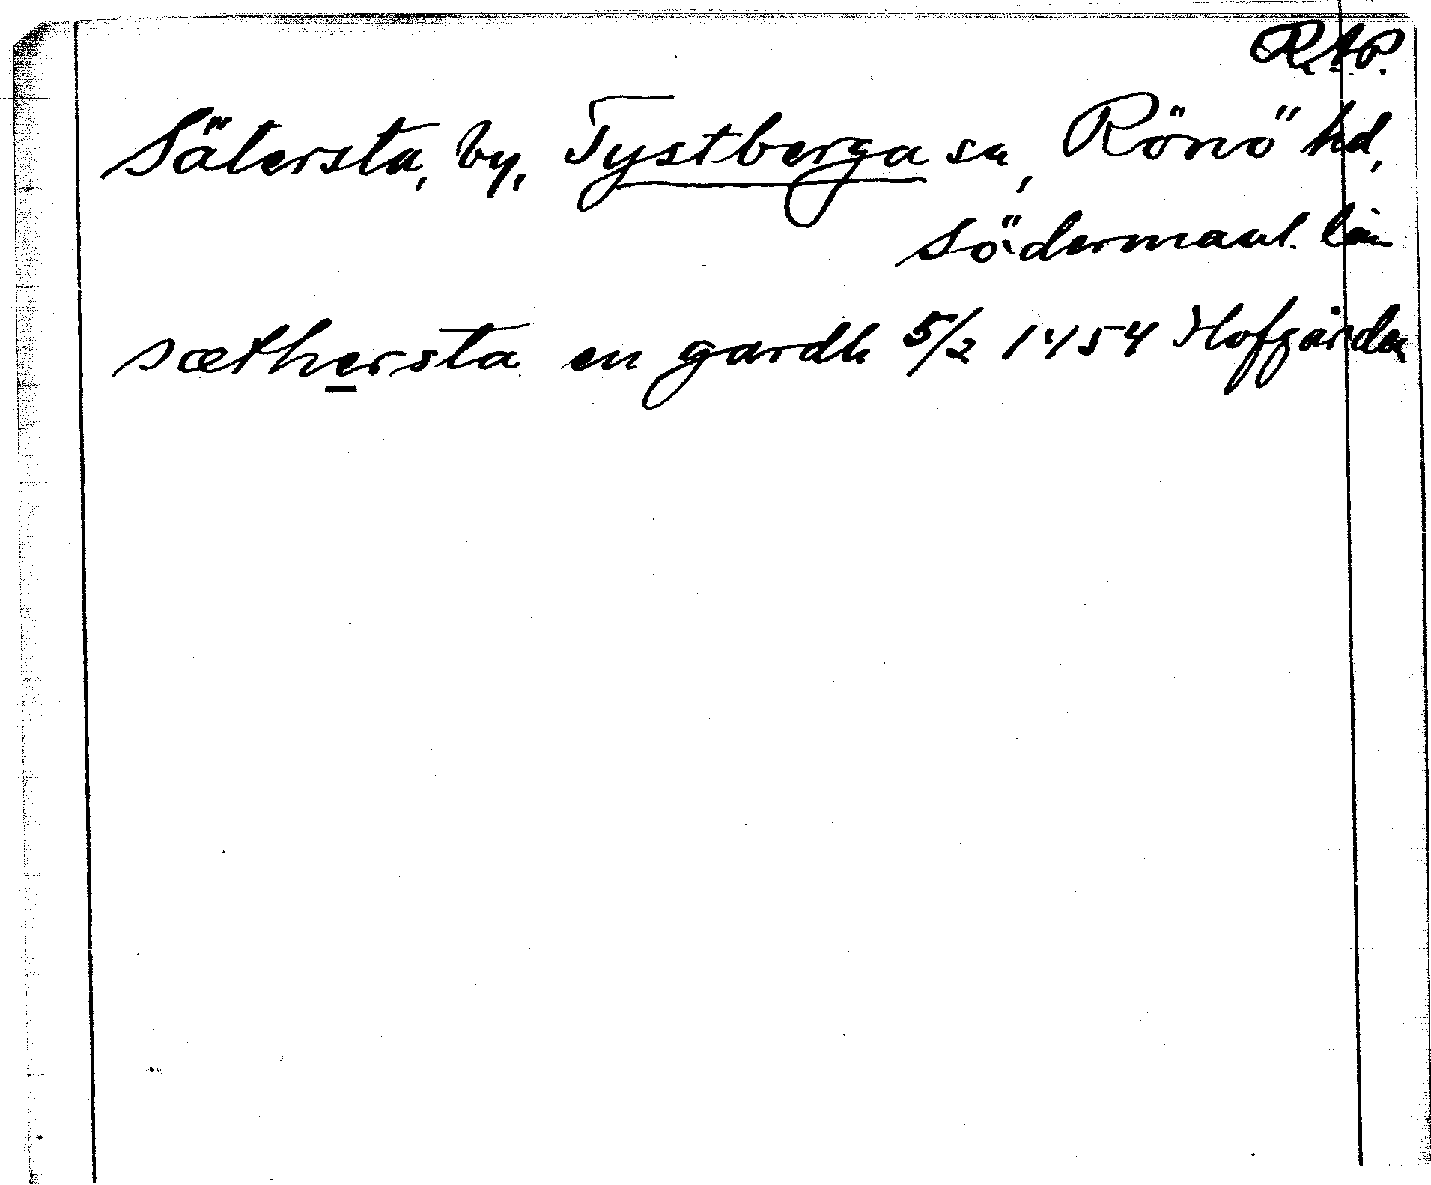 R.A.P.
Sätersta, by, Tystberga sn, Rönö hd,
Södermanl. län
sæthersta en gardh 5/2 1454 Hofgården